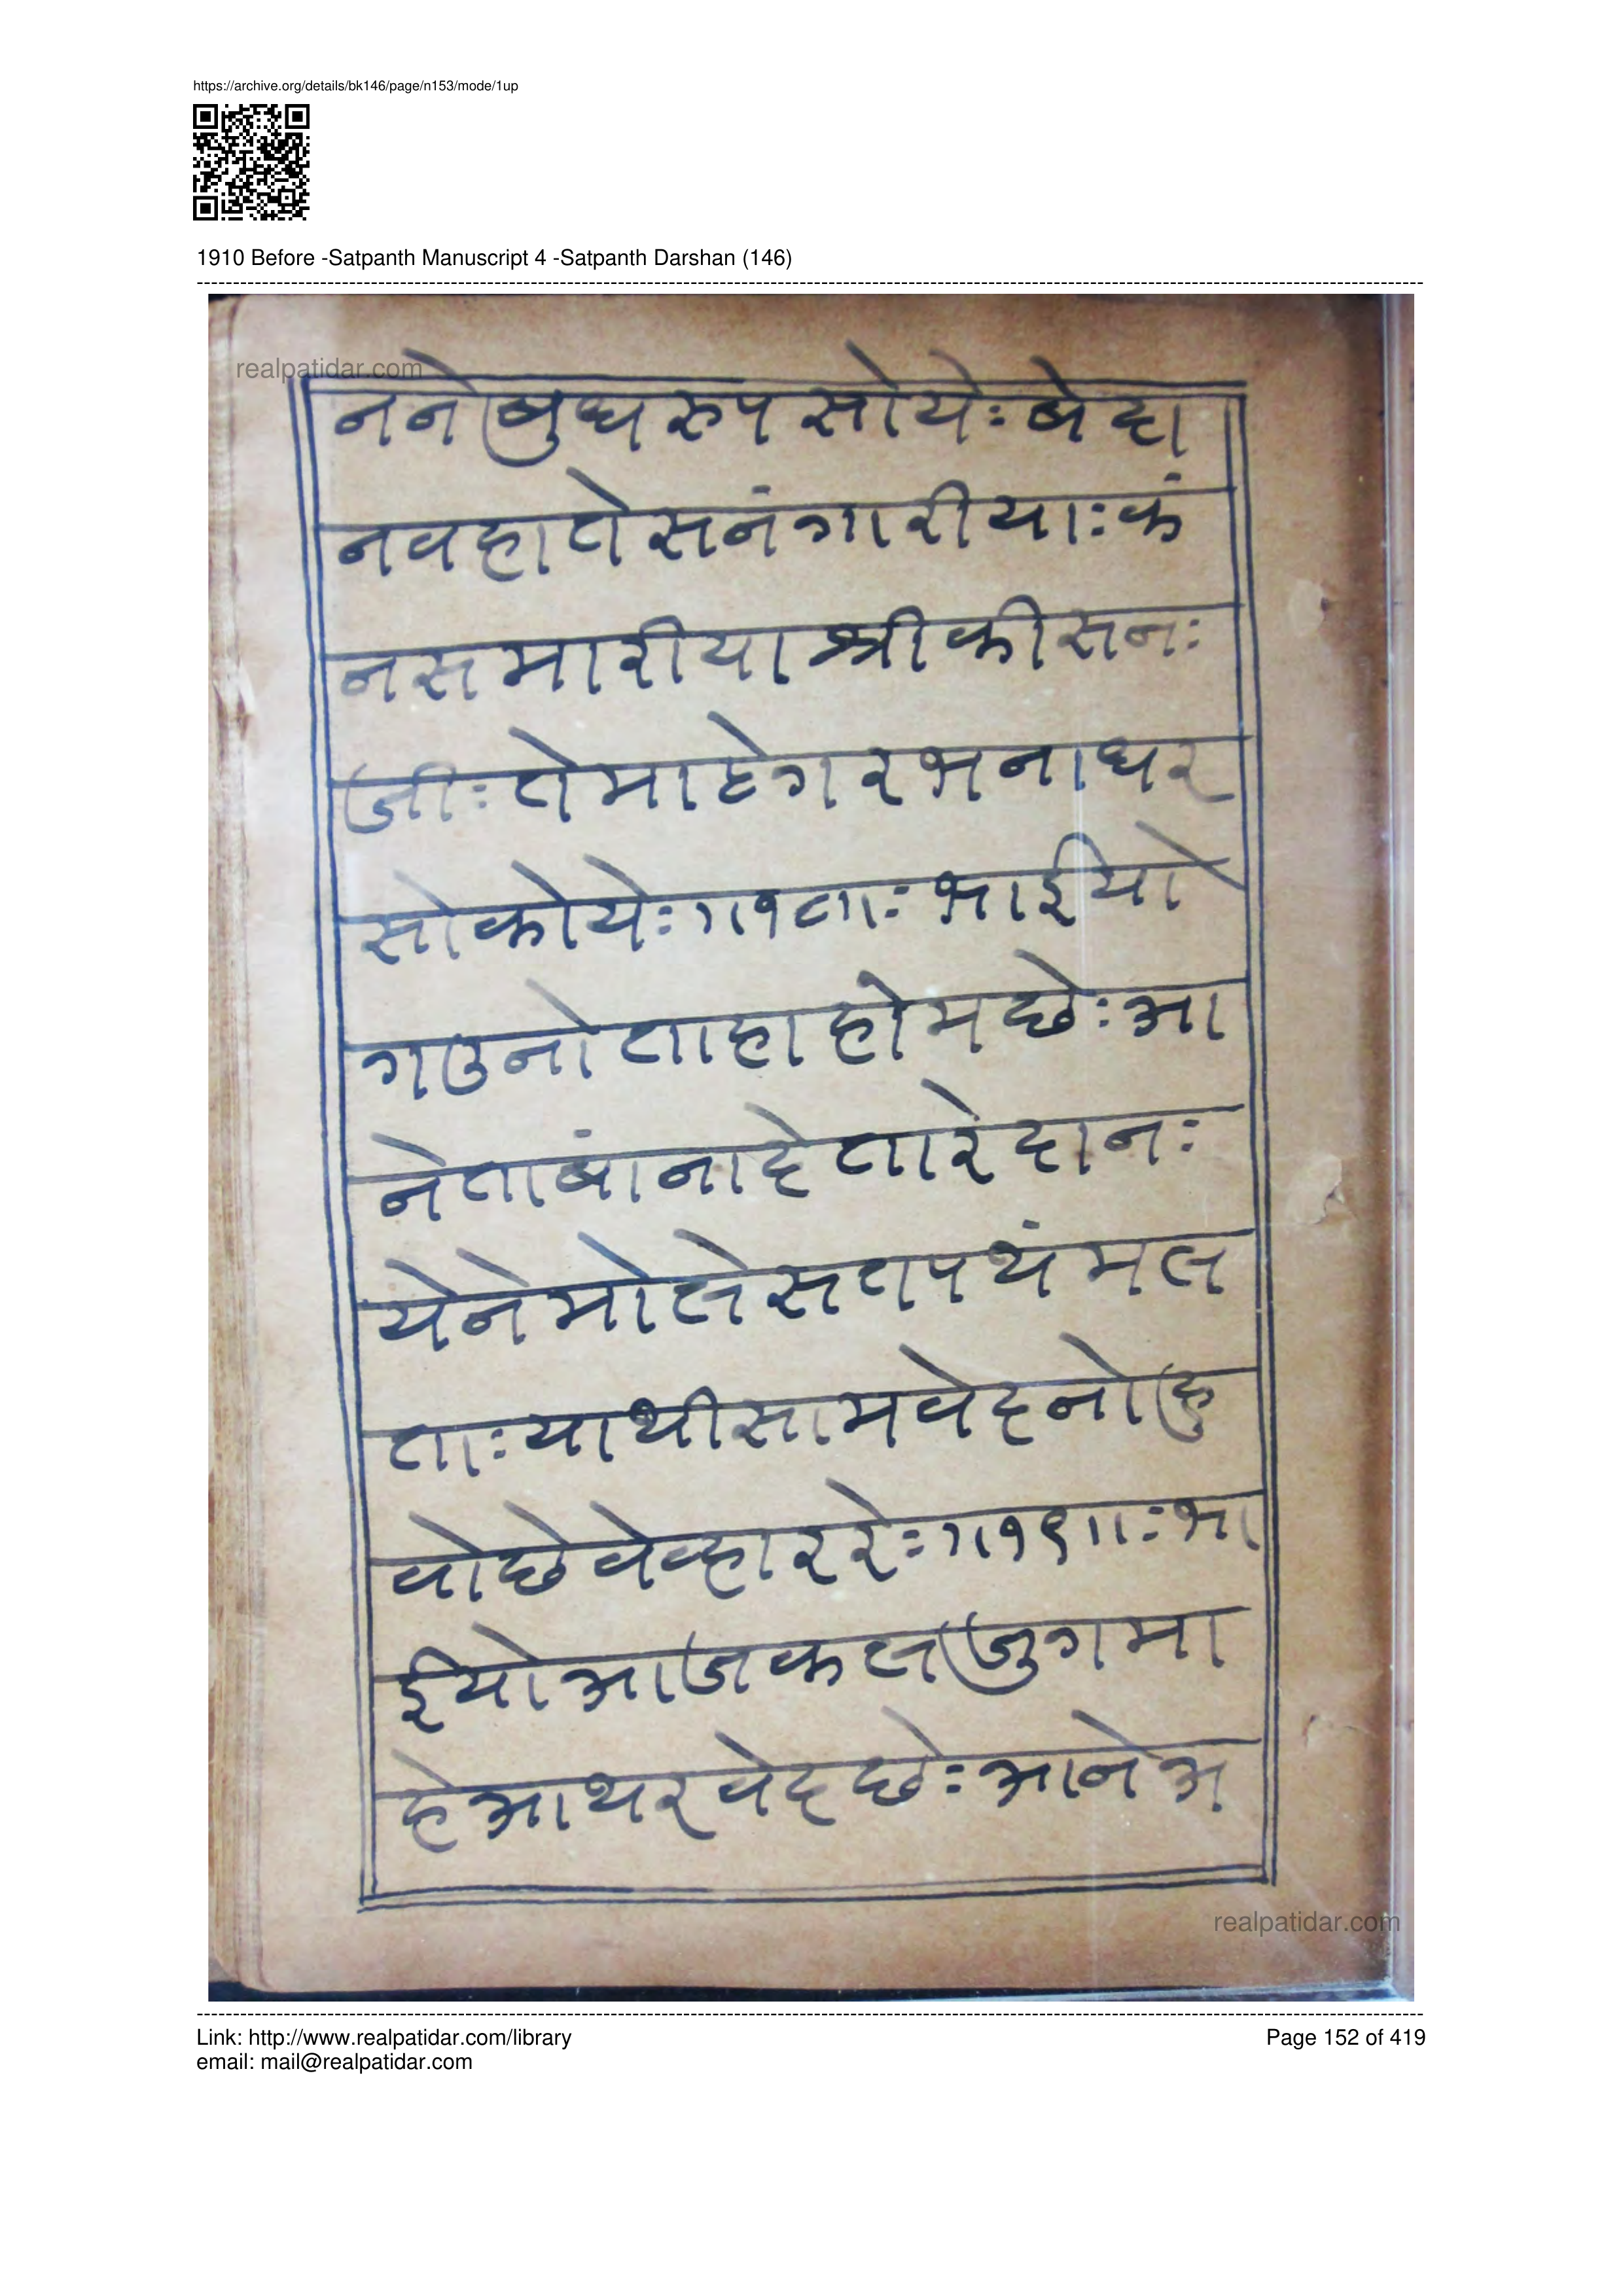 https://archive.org/details/bk146/page/n153/mode/1up
1910 Before -Satpanth Manuscript 4 -Satpanth Darshan (146)
realpatidar.com
नने बुध रुप सोये: बे दा
नव हाते सनंगारीया: कं
नस मारीया श्री कीसन:
जी: ते माहे गरभ ना धर
सो कोये: ॥१८॥: भाईयो
गउनो ताहा होम छे: आ
ने तांबांना हे तारे दान:
येने मोले सतपथं मल
ता: या थी साम वेद नो हु
वो छे वेव्हार रे: ॥१९॥: भा
ईयो आज कल जुग मा
हे आथर वेद छे: आने अ
realpatidar.com
Link: http://www.realpatidar.com/library
Page 152 of 419
email: mail@realpatidar.com